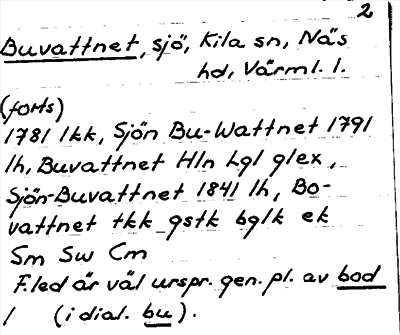 2
Buvattnet, sjö, Kila sn, Näs
hd, Värml. l.
(forts)
1781 lkk, Sjön Bu-Wattnet 1791
lh, Buvattnet Hln Lgl glex,
Sjön-Buvattnet 1841 lh, Bo-
vattnet tkk gstk bglk ek
Sm Sw Cm
F.led är väl urspr. gen. pl. av bod
1 (i dial. bu).